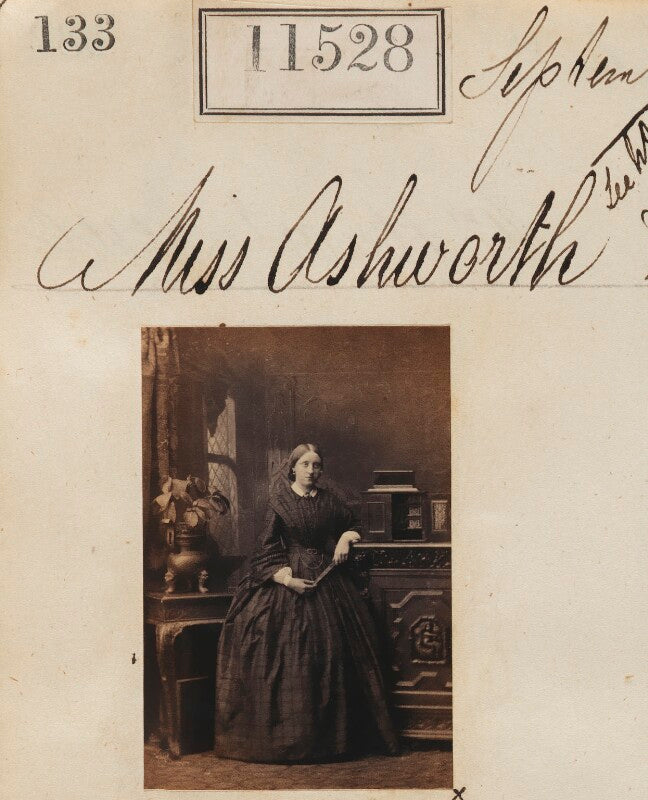 133
11528
Septem
See
Miss Ashworth
x